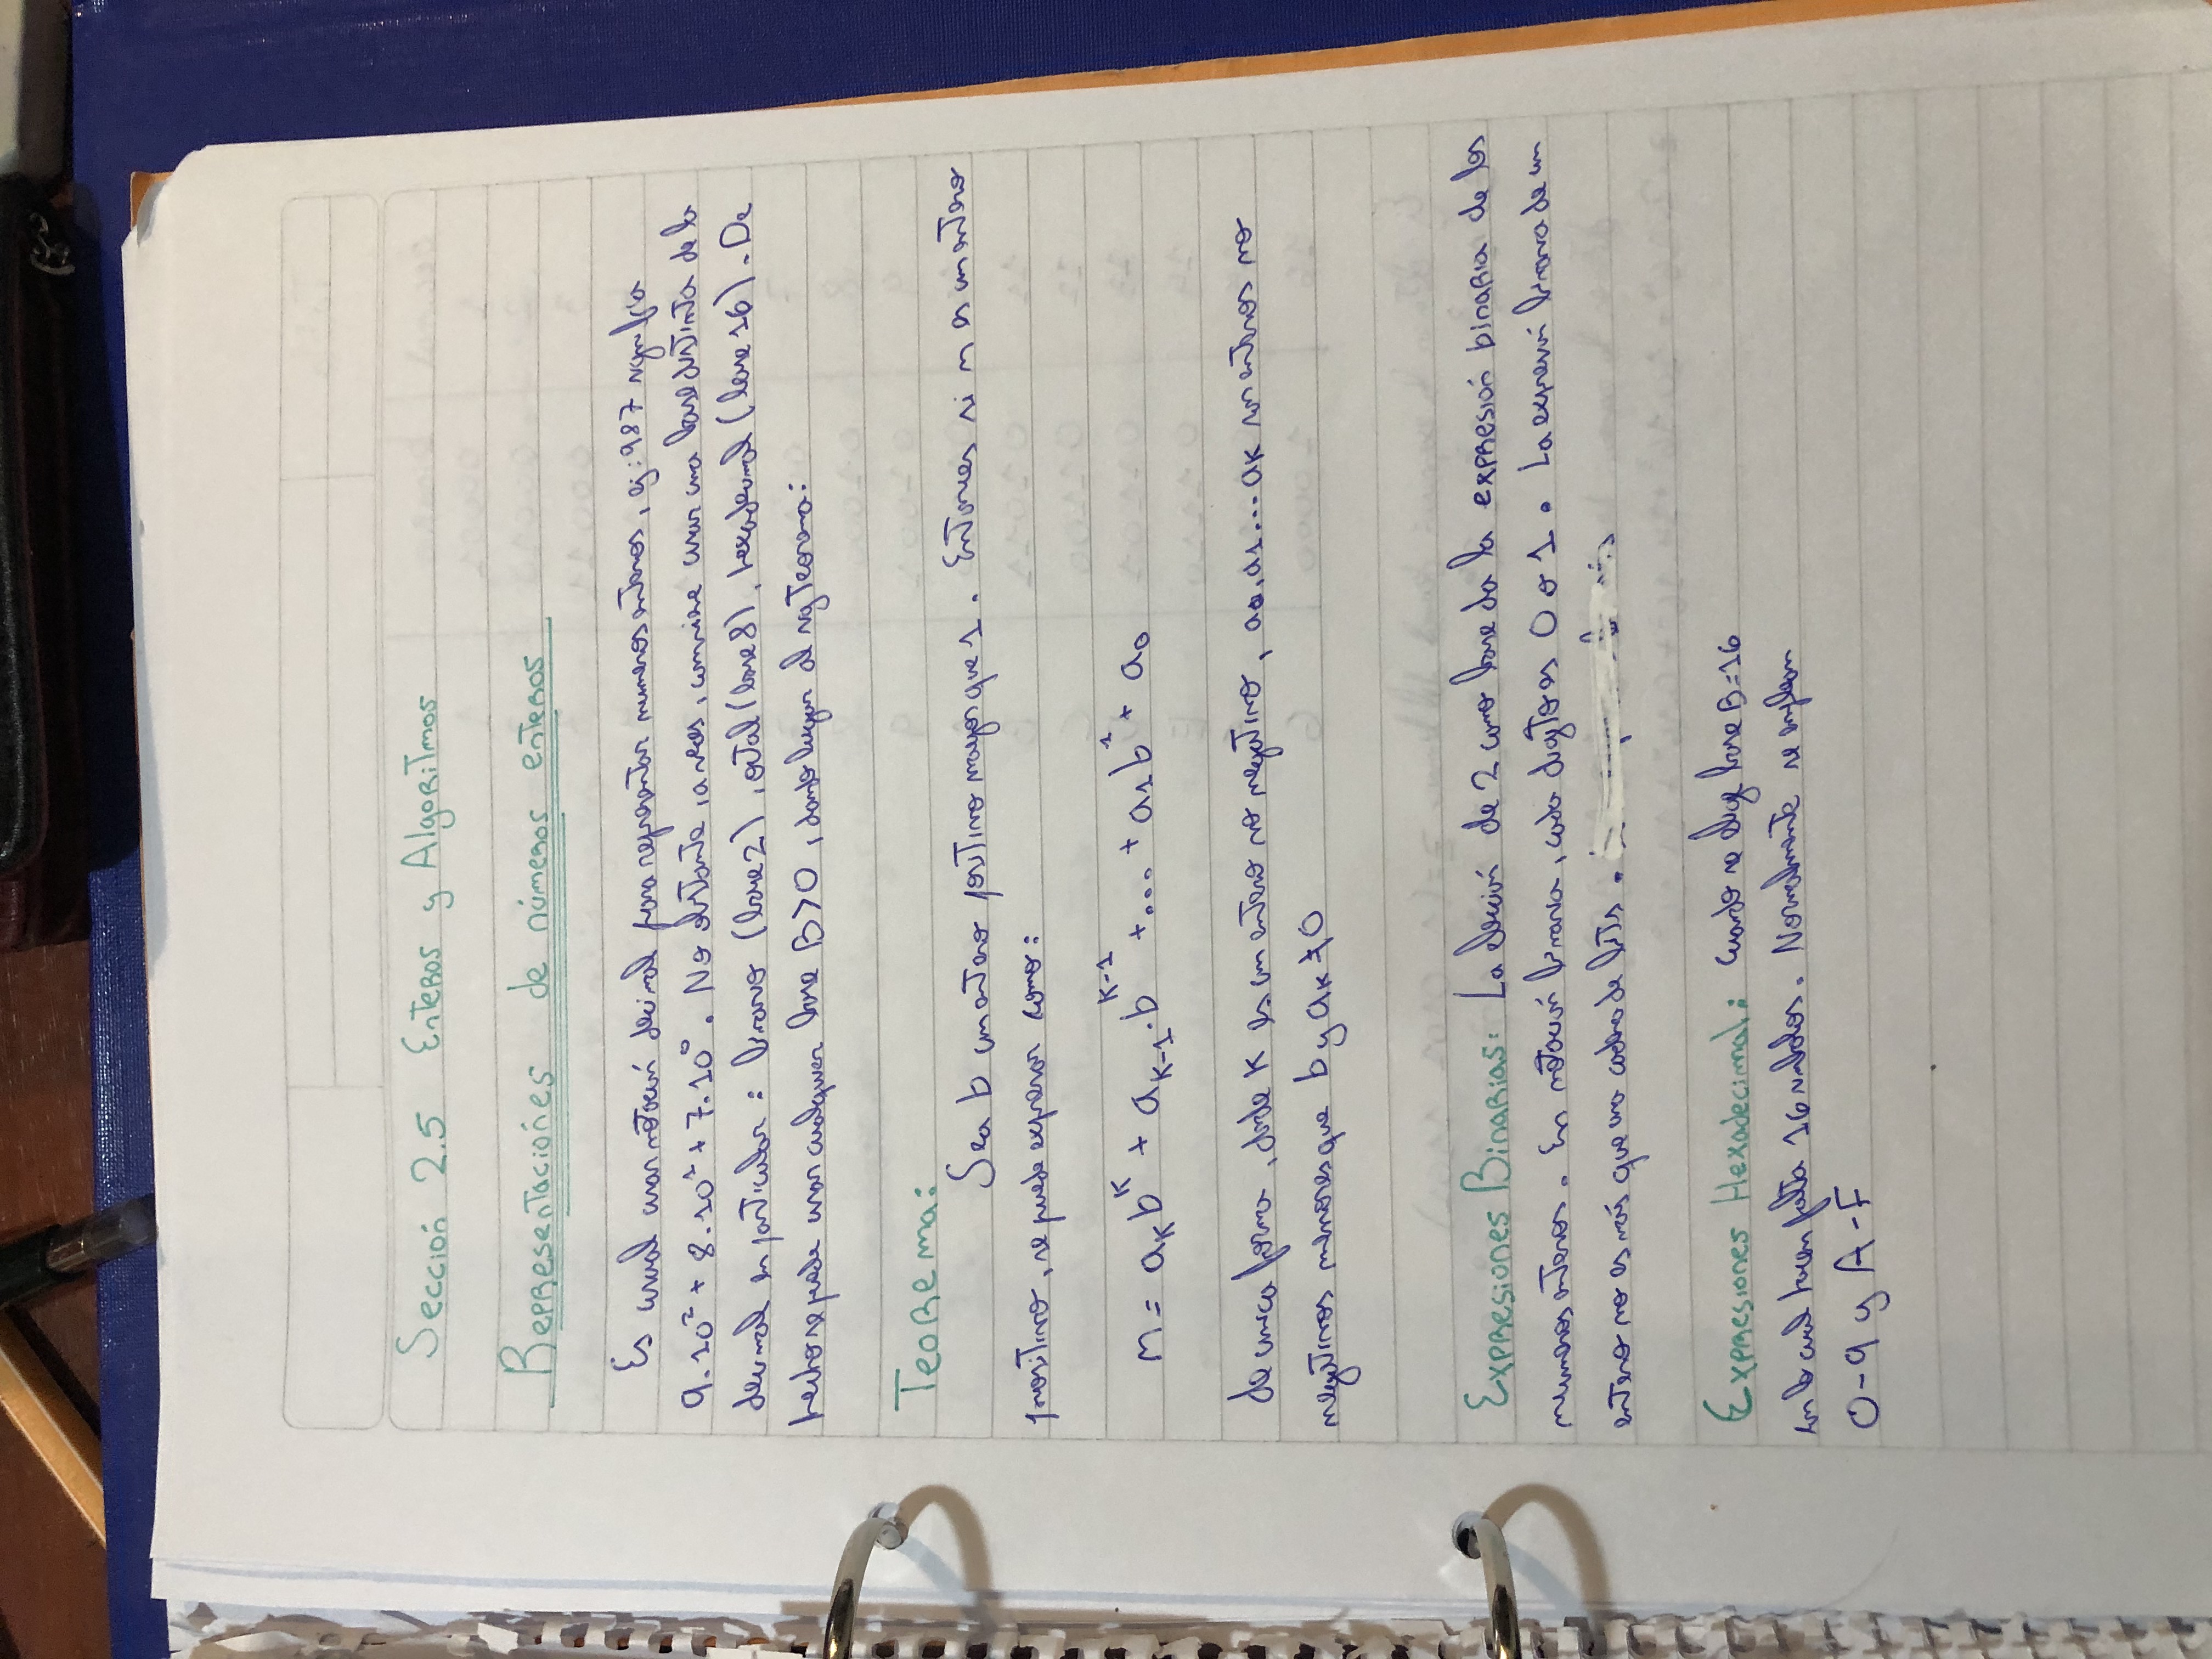 Sección 2.5 Enteros y Algoritmos
Representaciones de números enteros
Es usual usar notación decimal para representar numeros enteros, ej: 987 significa
9.10² + 8.10¹ + 7.10⁰. No obstante, a veces, conviene usar una base distinta de la
decimal en particular: binario (base 2), octal (base 8), hexadecimal (base 16). De
hecho se puede usar cualquier base B>0, dando lugar al sig Teorema:
Teorema:
Sea b un entero positivo mayor que 1. Entonces si n es un entero
positivo, se puede expresar como:
n = aₖbᵏ + aₖ₋₁.bᵏ⁻¹ +...+ a₁b¹ + a₀
de unica forma, donde K es un entero no negativo, a₀,a₁...aₖ son enteros no
negativos menores que b y aₖ ≠ 0
Expresiones Binarias: La elección de 2 como base da la expresión binaria de los
numeros enteros. En notación binaria, cada digito es 0 o 1. La expresión binaria de un
entero no es más que una cadena de bits.
Expresiones Hexadecimal: Cuando se elige base B=16
con lo cual hacen falta 16 simbolos. Normalmente se emplean
0-9 y A-F